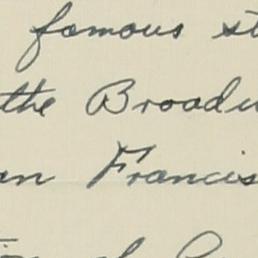 famous st
the Broadw
an Francis